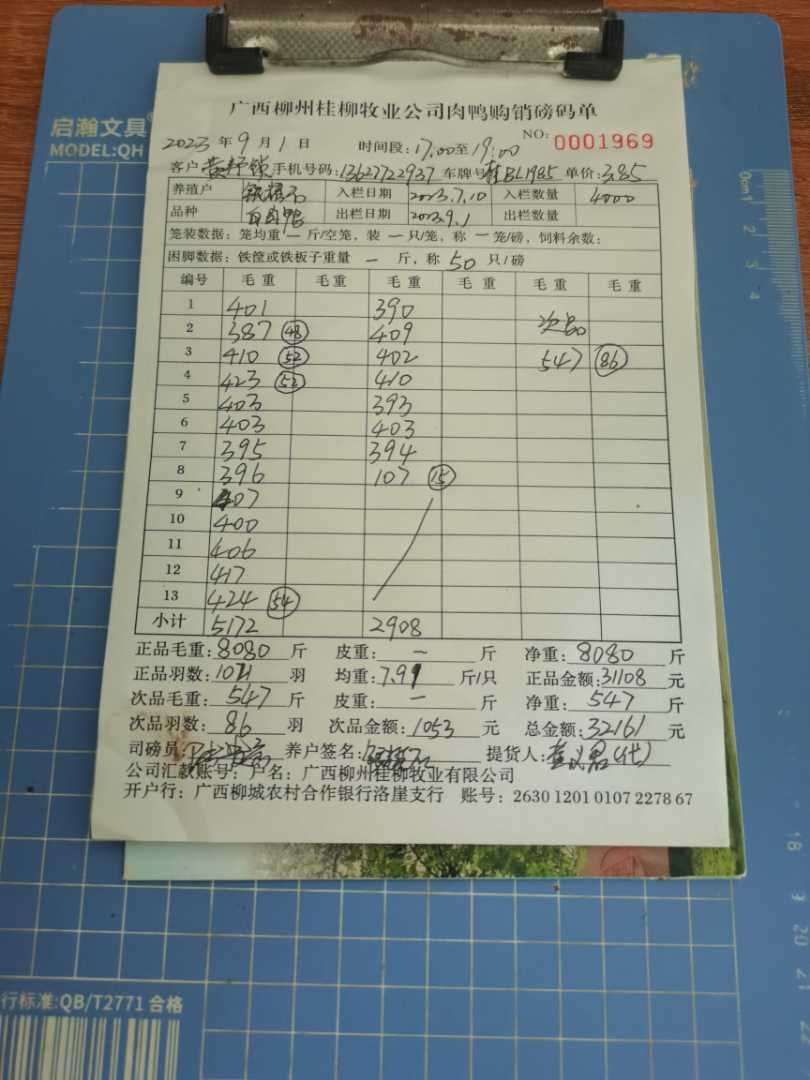 启瀚文具
MODEL:QH
广西柳州桂柳牧业公司肉鸭购销磅码单
2023年9月1日 时间段:17:00至19:00 NO: 0001969
客户 手机号码:13627722937 车牌号桂BL1985 单价:3.85
养殖户 入栏日期 2023.7.10 入栏数量 4000
品种 白肉鸭 出栏日期 2023.9.1 出栏数量
笼装数据: 笼均重 一 斤/空笼, 装 一 只/笼, 称 一 笼/磅, 饲料余数:
困脚数据: 铁筐或铁板子重量 一 斤, 称 50 只/磅
编号 毛重 毛重 毛重 毛重 毛重 毛重
1 401 390
2 387 48 409 次品
3 410 52 402 547 86
4 423 52 410
5 403 393
6 403 403
7 395 394
8 396 107 15
9 407
10 400
11 406
12 417
13 424 54
小计 5172 2908
正品毛重:8080 斤 皮重: 一 斤 净重: 8080 斤
正品羽数: 羽 均重:7.91 斤/只 正品金额:31108 元
次品毛重: 547 斤 皮重: 一 斤 净重: 547 斤
次品羽数: 86 羽 次品金额:1053 元 总金额:32161 元
司磅员: 养户签名: 提货人:
公司汇款账号: 户名: 广西柳州桂柳牧业有限公司
开户行: 广西柳城农村合作银行洛崖支行 账号: 2630 1201 0107 2278 67
行标准:QB/T2771 合格